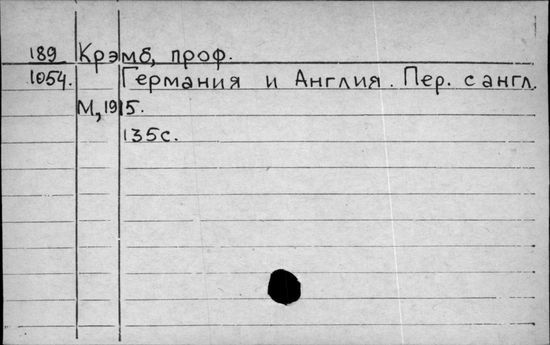 189 Крэмб, проф.
1054. Германия и Англия. Пер. с англ.
М, 1915.
135с.